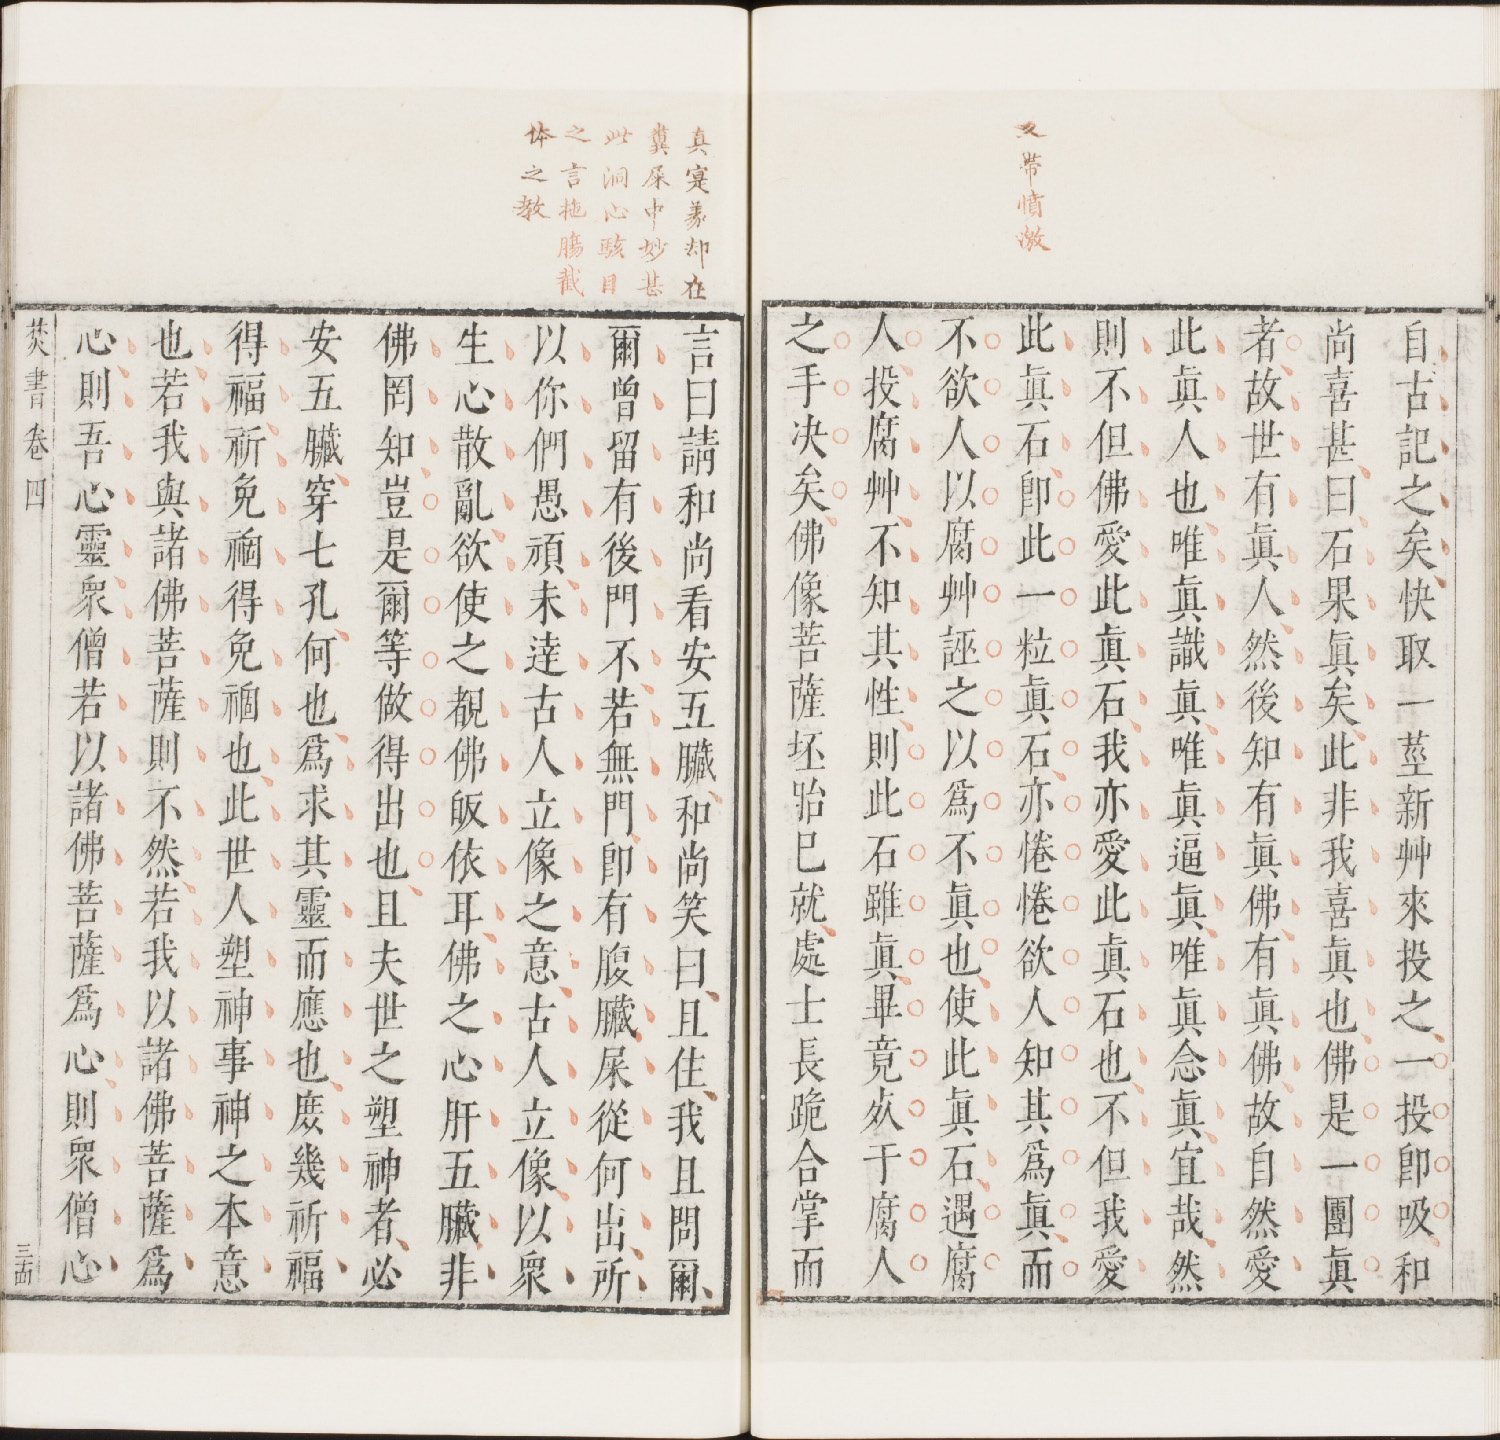 又帶憤激
自古記之矣快取一莖新艸來投之一投卽吸和
尚喜甚曰石果眞矣此非我喜眞也佛是一團眞
者故世有眞人然後知有眞佛有眞佛故自然愛
此眞人也唯眞識眞唯眞逼眞唯眞念眞宜哉然
則不但佛愛此眞石我亦愛此眞石也不但我愛
此眞石卽此一粒眞石亦惓惓欲人知其爲眞而
不欲人以腐艸誣之以爲不眞也使此眞石遇腐
人投腐艸不知其性則此石雖眞畢竟㱕于腐人
之手决矣佛像菩薩坯胎已就處士長跪合掌而
真寔義却在
糞屎中妙甚
此洞心駭目
之言拖腸截
体之教
言曰請和尚看安五臟和尚笑曰且住我且問爾
爾曾留有後門不若無門卽有腹臟屎從何出所
以你們愚頑未達古人立像之意古人立像以衆
生心散亂欲使之覩佛皈依耳佛之心肝五臟非
佛罔知豈是爾等做得出也且夫世之塑神者必
安五臟穿七孔何也爲求其靈而應也庻幾祈福
得福祈免禍得免禍也此世人塑神事神之本意
也若我與諸佛菩薩則不然若我以諸佛菩薩爲
心則吾心靈衆僧若以諸佛菩薩爲心則衆僧心
焚書卷四
三十四